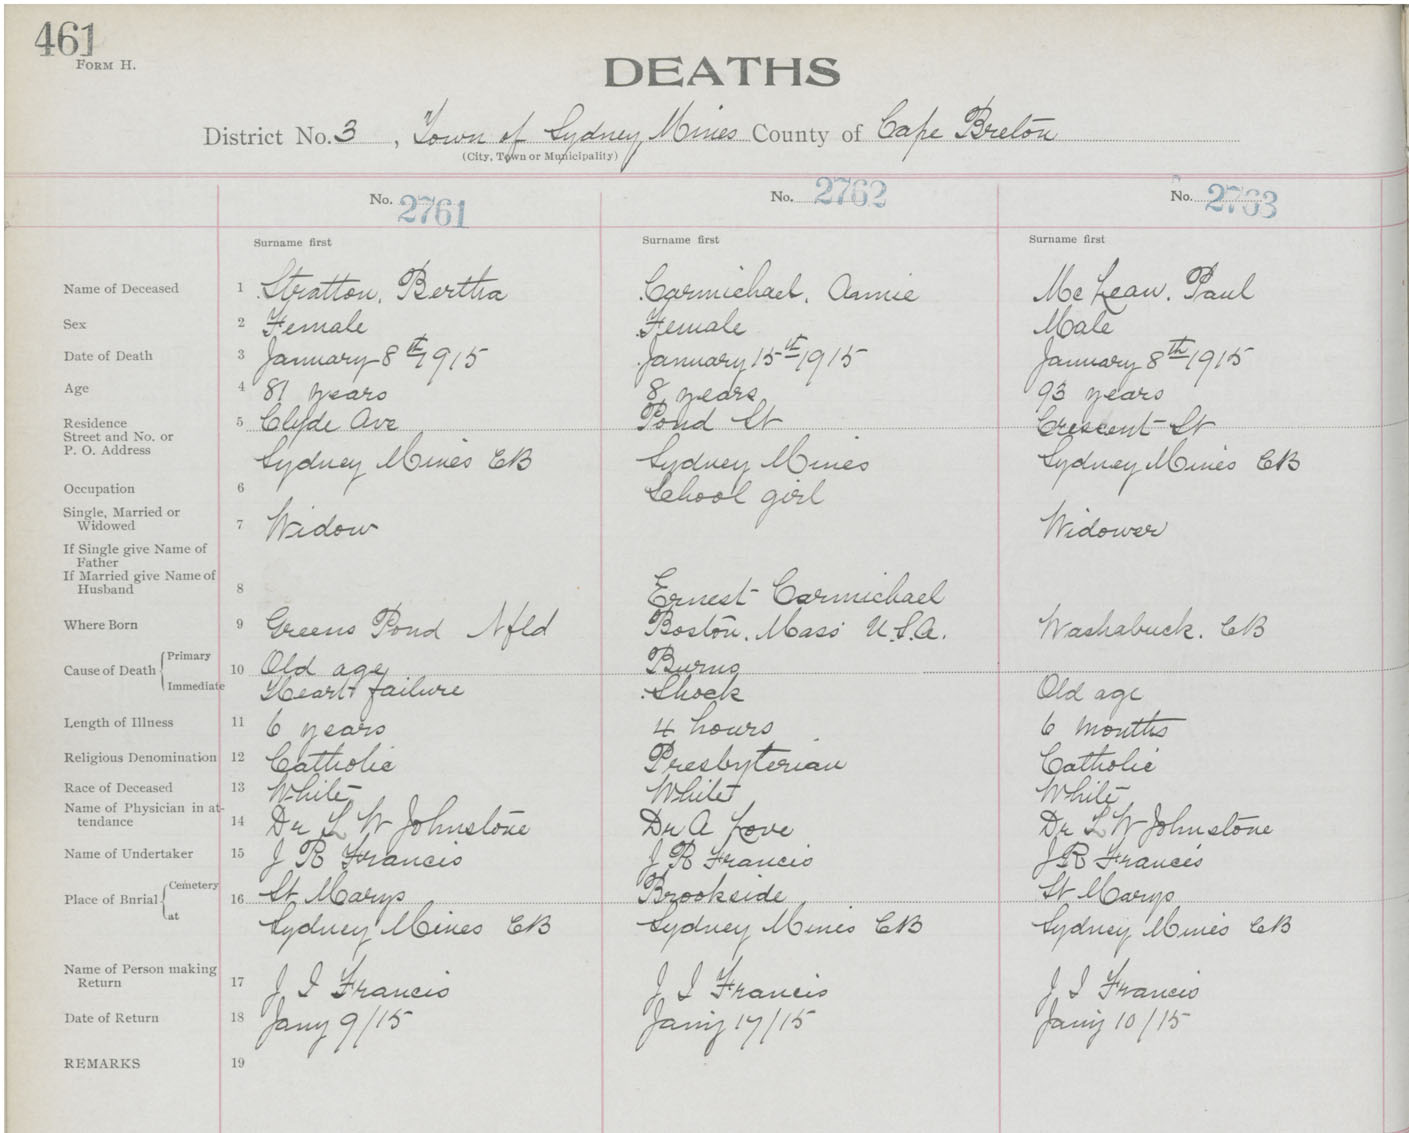 461
FORM H.
DEATHS
District No. 3, Town of Sydney Mines County of Cape Breton
(City, Town or Municipality)
No. 2761 No. 2762 No. 2763
Surname first Surname first Surname first
Name of Deceased 1 Stratton, Bertha Carmichael, Annie McLean, Paul
Sex 2 Female Female Male
Date of Death 3 January 8th 1915 January 15th 1915 January 8th 1915
Age 4 81 years 8 years 93 years
Residence 5 Clyde Ave Pond St Crescent St
Street and No. or
P. O. Address Sydney Mines CB Sydney Mines Sydney Mines CB
Occupation 6 School girl
Single, Married or
Widowed 7 Widow Widower
If Single give Name of
Father
If Married give Name of
Husband 8 Ernest Carmichael
Where Born 9 Greens Pond Nfld Boston, Mass U.S.A. Washabuck. CB
Cause of Death Primary 10 Old age Burns
Immediate Heart failure Shock Old age
Length of Illness 11 6 years 4 hours 6 months
Religious Denomination 12 Catholic Presbyterian Catholic
Race of Deceased 13 White White White
Name of Physician in at-
tendance 14 Dr L W Johnstone Dr A Love Dr L W Johnstone
Name of Undertaker 15 J R Francis J R Francis J R Francis
Place of Burial Cemetery 16 St Marys Brookside St Marys
at Sydney Mines CB Sydney Mines CB Sydney Mines CB
Name of Person making
Return 17 J I Francis J I Francis J I Francis
Date of Return 18 Jany 9/15 Jany 17/15 Jany 10/15
REMARKS 19